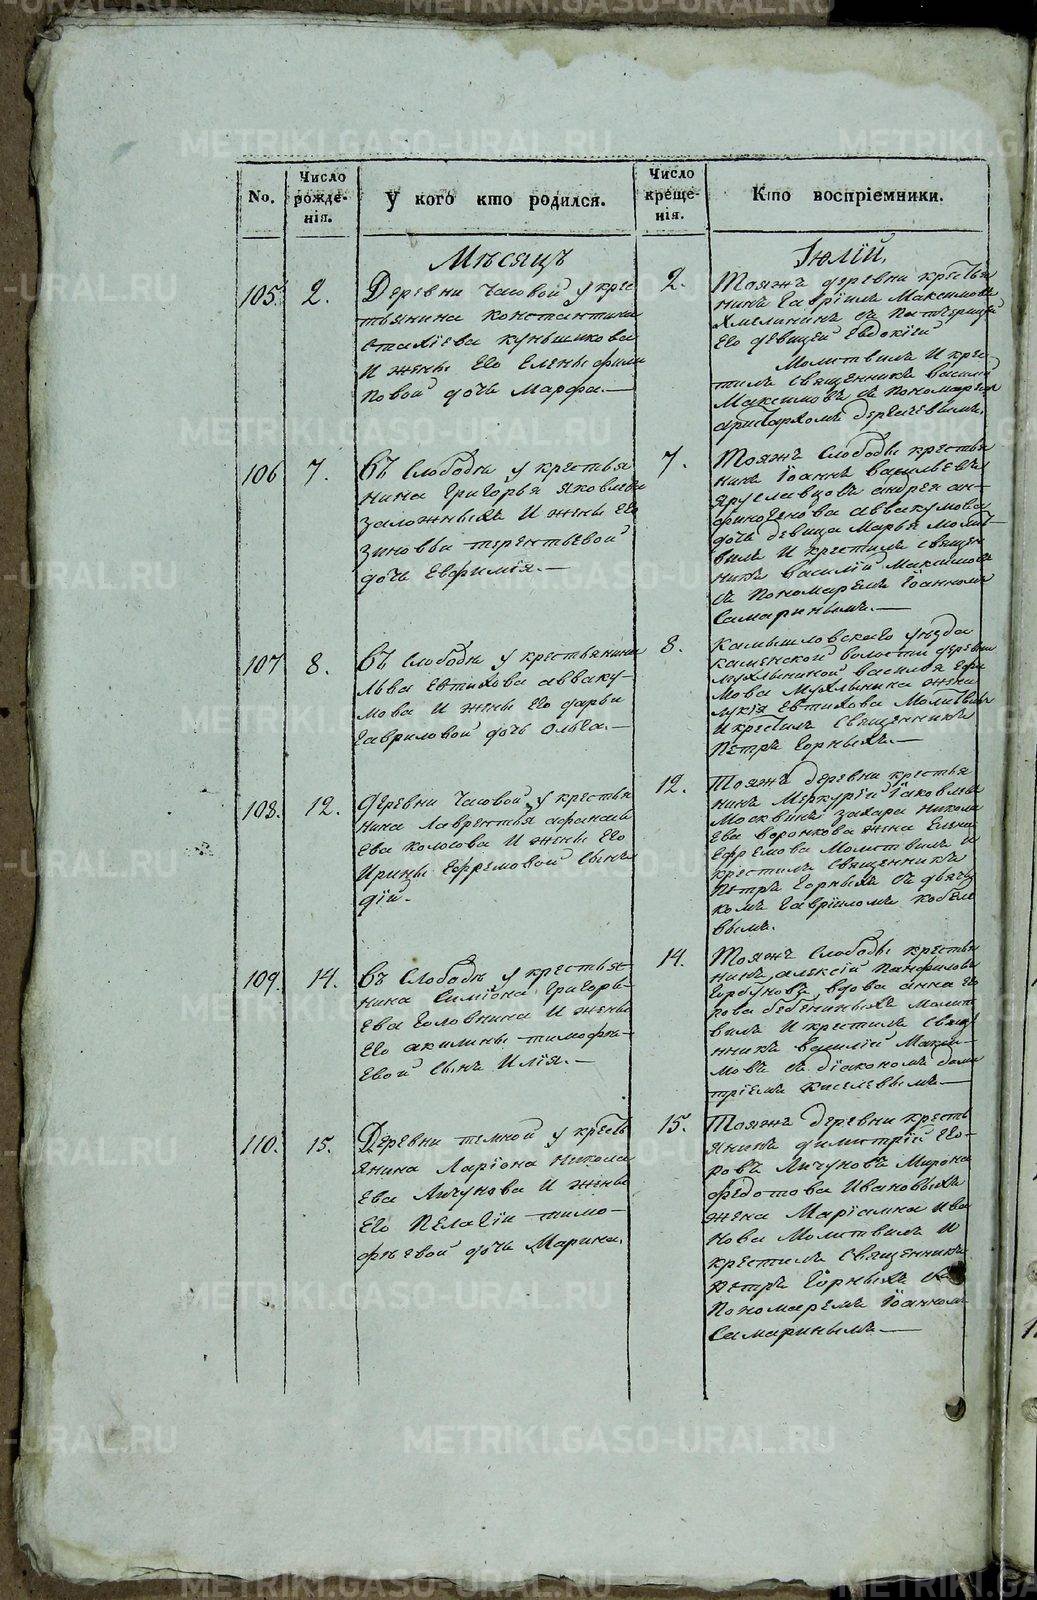 No.
Число рожде- нія.
У кого кто родился.
Число креще- нія.
Кто воспріемники.
Мѣсяцъ
Іюлій.
105.
2.
Деревни Часовой у крес
тьянина Константина
Стахіева
И жены Его Елены Фили
повой дочь Марфа.—
2.
Тояжъ деревни крестья
нинъ Гавріилъ Максимовъ
Хмелининъ съ
Его девицей Евдокіей
Молитвилъ И крес
тилъ Священникъ Василій
Максимовъ съ Пономаремъ
Аристархомъ
106
7.
Въ Слободѣ у крестья
нина Григорья Яковлева
Заложныхъ И жены Его
Зиновьи Терентьевой
дочь Евфимія.—
7.
Тояжъ Слободы крестья
нинъ Іоаннъ Васильевъ
Яруславцовъ Андрея Ан-
финогенова Аввакумова
дочь девица Марья Молит
вилъ И крестилъ Священ
никъ Василій Максимовъ
съ Пономаремъ Іоанномъ
Самаринымъ.—
107
8.
Въ Слободѣ у крестьянина
Льва Евтихова Авваку-
мова И жены Его Дарьи
Гавриловой дочь Ольга.—
8.
Камышловскаго уезда
Каменской волости деревни
Мухлыниной Василья Ефи
мова Мухлынина жена
Евтихова Молитвилъ
И крестилъ Священникъ
Петръ Горныхъ.—
108.
12.
Деревни Часовой у крестья
нина Лаврентья Афанась
ева Колосова И жены Его
Ирины Ефремовой Сынъ
12.
Тояжъ деревни крестья
нинъ Меркурій Іаковлевъ
Москвинъ Захара Никола
ева Воронкова жена Елена
Ефремова Молитвилъ и
крестилъ Священникъ
Петръ Горныхъ съ дьяч
комъ Гавріиломъ Кобеле
вымъ.
109.
14.
Въ Слободѣ у крестья
нина Симіона Григорь-
ева Головнина И жены
Его Акилины Тимофе-
евой Сынъ Илія.—
14.
Тояжъ Слободы крестья
нинъ Алексій Панфиловъ
Горбуновъ вдова Анна
Молит
вилъ И крестилъ Священ
никъ Василій Макси-
мовъ съ діакономъ Дими
тріемъ Киселевымъ—
110.
15.
Деревни Темной у кресть
янина Ларіона Никола
ева Личунова И жены
Его Пелагіи Тимо-
фѣевой дочь Марина.
15.
Тояжъ деревни кресть
янинъ Димитрій Его-
ровъ Личуновъ Мирона
Федотова Ивановыхъ
жена Маріамна Ива
нова Молитвилъ И
крестилъ Священникъ
Петръ Горныхъ съ
Пономаремъ Іоанномъ
Самаринымъ—
METRIKI.GASO-URAL.RU